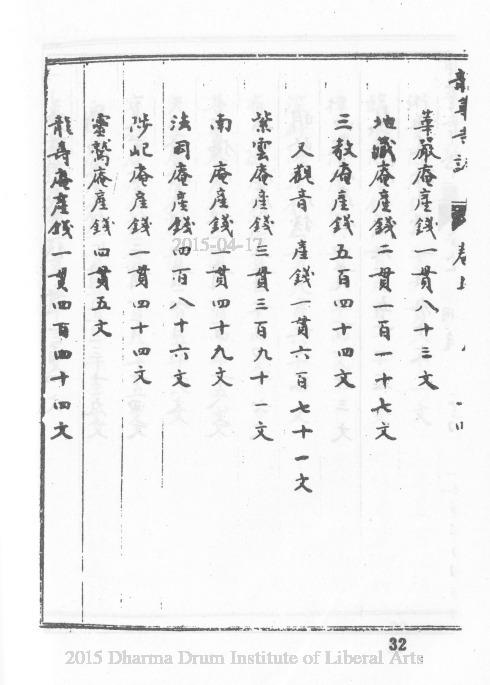 華嚴庵產錢一貫八十三文
地藏庵產錢二貫一百一十七文
三教府產錢五百四十四文
又觀音產錢一貫六百七十一文
紫雲庵產錢三貫三百九十一文
南庵產錢一貫四十九文
法同庵產錢四百八十六文
陟屺庵產錢二貫四十四文
靈鷲庵產錢四貫五文
龍壽庵產錢一貫四百四十四文
卷上
32
2015-04-17
2015 Dharma Drum Institute of Liberal Arts